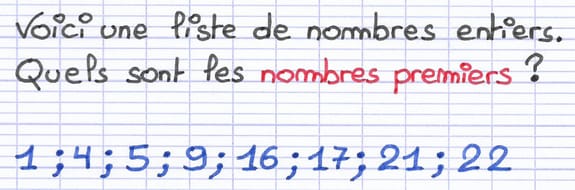 Voici une liste de nombres entiers.
Quels sont les nombres premiers ?
1 ; 4 ; 5 ; 9 ; 16 ; 17 ; 21 ; 22